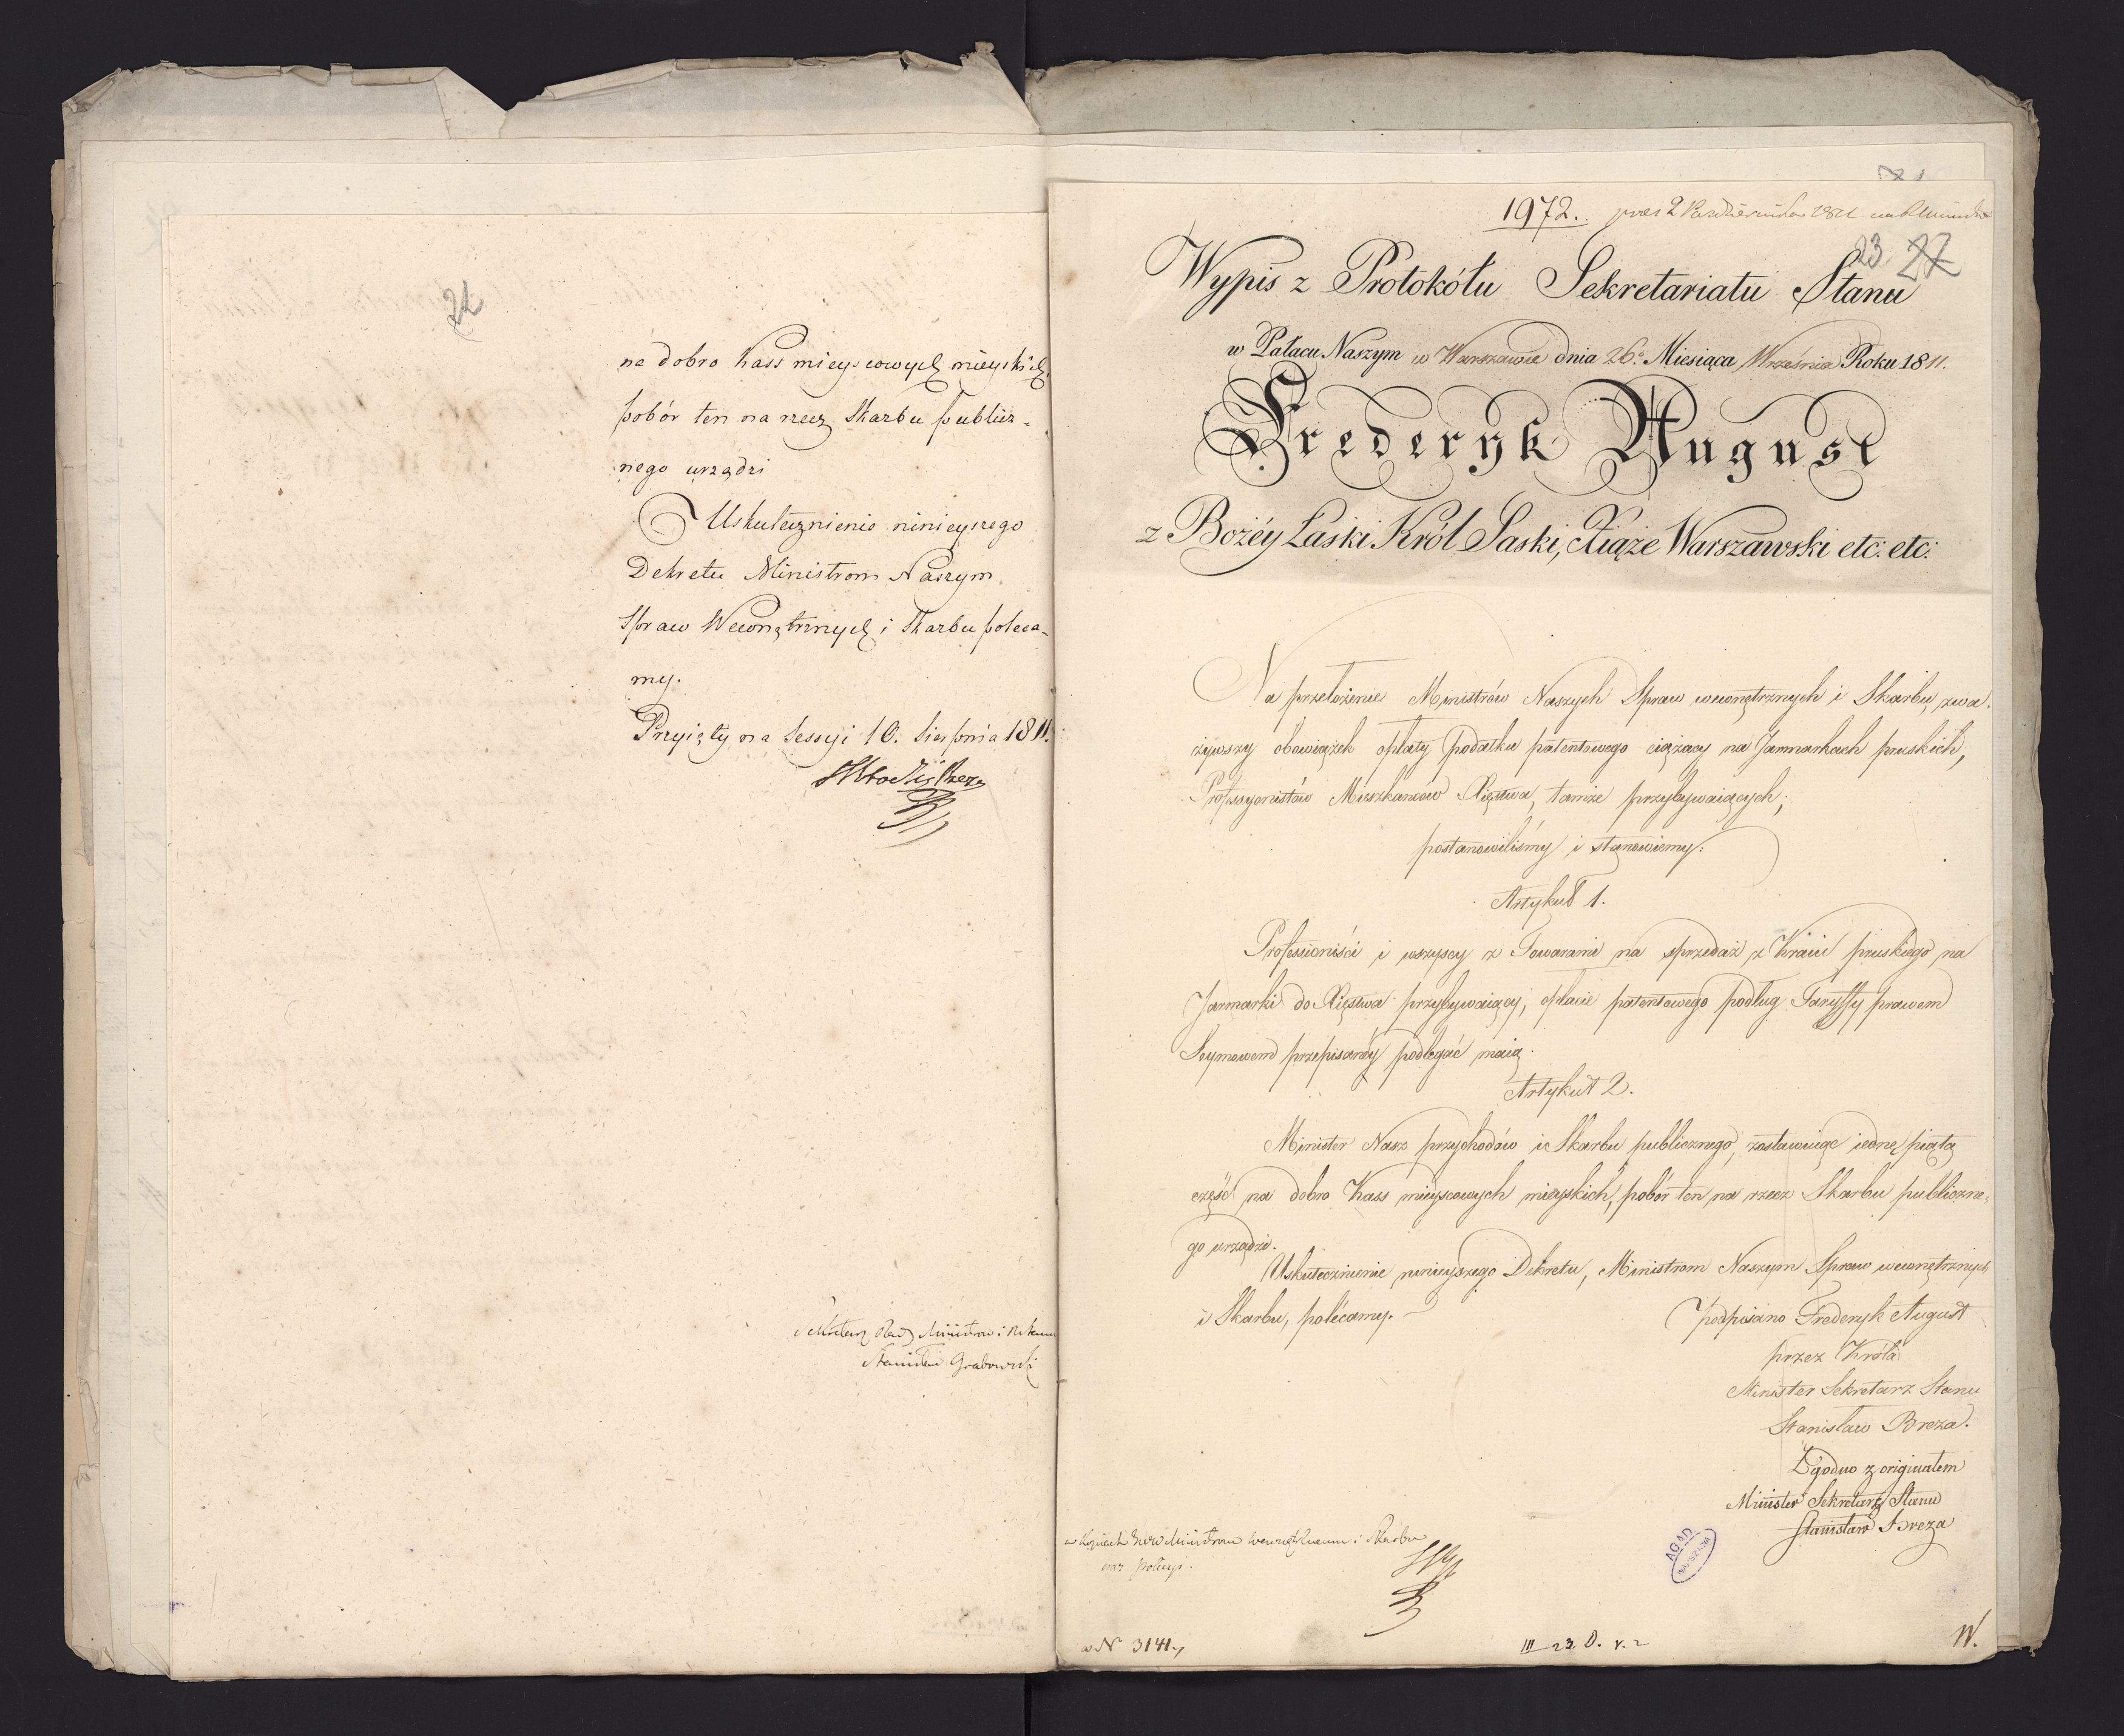 22
na dobro Kass mieyscowych mieyskich
pobór ten na rzecz Skarbu publicz-
nego urządzi
Uskutecznienie ninieyszego
Dekretu Ministrom Naszym
Spraw Wewnętrznych i Skarbu poleca-
my.
Przyięty na Sessyi 10. Sierpnia 1811.
Sekretarz Rady Ministrów
Stanisław Grabowski
1972. 2 Października 1811
23 27
Wypis z Protokółu Sekretariatu Stanu
w Pałacu Naszym w Warszawie dnia 26. Miesiąca Września Roku 1811.
Frederyk August
z Bożéy Łaski Król Saski, Xiąże Warszawski etc: etc:
Na przełożenie Ministrów Naszych Spraw wewnętrznych i Skarbu, zwa-
żywszy obowiązek opłaty podatku patentowego ciążący na Jarmarkach pruskich,
Professyonistów Mieszkańców Xięstwa, tamże przybywaiących;
postanowiliśmy i stanowiemy:
Artykuł 1.
Professioniści i wszyscy z Towarami na sprzedaż z Kraiu pruskiego na
Jarmarki do Xięstwa przybywaiący, opłacie patentowego podług Taryffy prawem
Seymowem przepisanéy podlegać maią.
Artykuł 2.
Minister Nasz przychodów i Skarbu publicznego, zostawuiąc iednę piątą
część na dobro Kass mieyscowych mieyskich, pobór ten na rzecz Skarbu publiczne-
go urządzi.
Uskutecznienie ninieyszego Dekretu, Ministrom Naszym Spraw wewnętrznych
i Skarbu, polécamy.
Podpisano Frederyk August
przez Króla
Minister Sekretarz Stanu
Stanisław Breza.
Zgodno z originałem
Minister Sekretarz Stanu
Stanisław Breza
AGAD
WARSZAWA
w Kopiach Ministrom i Skarbu
oraz Policyi.
N 3141
III 23 D.
W.